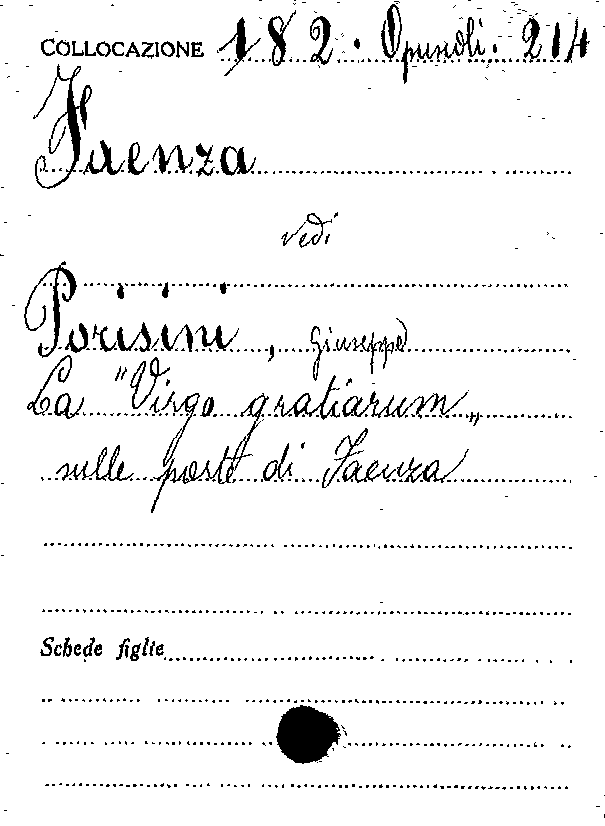 COLLOCAZIONE 182. Opuscoli. 214
Faenza
vedi
Porisini, Giuseppe
La "Virgo gratiarum„
sulle porte di Faenza
Schede figlie